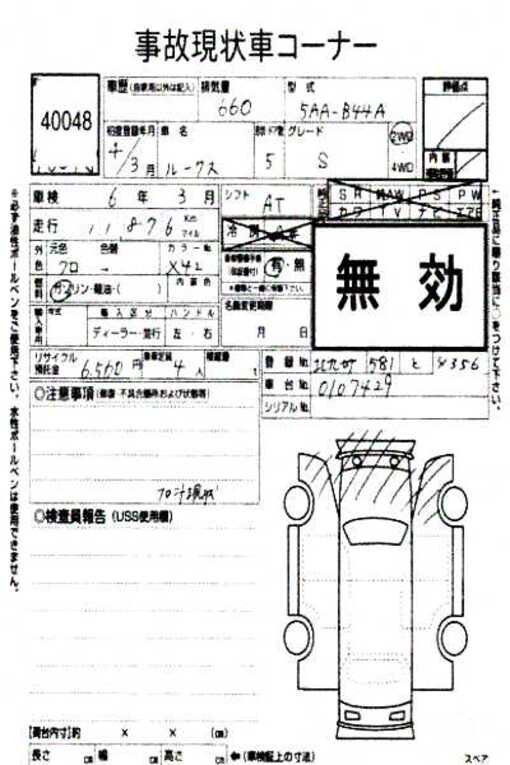 事故現状車コーナー
40048
車歴(自家用以外は記入) 排気量 型式 評価点
660 5AA-B44A
初度登録年月 車名 ドア数 グレード 2WD 内装
4/3月 ルークス 5 S 4WD
車検 6年 3月 シフト AT
SR AW PS PW
カワ TV ナビ エアB
走行 11,876 Km マイル 冷房
外色 元色 色替 カラーNo.
クロ - X42
有・無
燃料 ガソリン・軽油・( ) 内装色
無効
輸入車用 年式 輸入区分 ハンドル
ディーラー・並行 左・右
名義変更期限
月 日
リサイクル預託金 6,560円 乗車定員 4人 積載量 t
登録No. 581 と 4356
車台No. 0107429
シリアルNo.
◎注意事項(修復・不具合箇所および状態等)
フロ 現状
◎検査員報告(USS使用欄)
[荷台内寸]約 × × (cm)
長さ cm 幅 cm 高さ cm ←(車検証上の寸法)
スペア
※必ず油性ボールペンをご使用下さい。水性ボールペンは使用できません。
↑純正品に限り該当に○をつけて下さい。